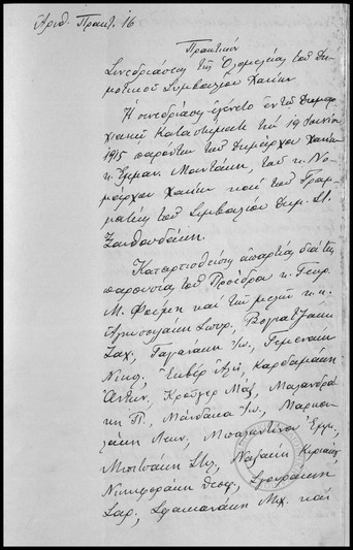 Αριθ. Πρακτ. 16
Πρακτικόν
Συνεδριάσεως της Ολομελείας του Δη-
μοτικού Συμβουλίου Χανίων
Η συνεδρίασις εγένετο εν τω Δημαρ-
χιακώ Καταστήματι τη 19 Ιουνίου
1915 παρόντων του Δημάρχου Χανίων
κ. Εμμαν. Μουντάκη, του κ. Νο-
μάρχου Χανίων και του Γραμ-
ματέως του Συμβουλίου Δημ. Στ.
Ξανθουδάκη.
Καταρτισθείσης απαρτίας διά της
παρουσίας του Προέδρου κ. Γεωρ.
Μ. Φούμη και των μελών κ.κ.
Αγγουσλάκη Σωτρ. Βογιατζάκη
Ζαχ, Γαγανάκη Ιω, Γεμενάκη
Νικολ, Ενβέρ Αλή, Καρδαμάκη
Αντων, Κρούγερ Μάξ, Μαλανδρά-
κη Π, Μάνδακα Ιω, Μαρκου-
λάκη Αντων, Μπολαντίνου Εμμ,
Μποτσάκη Στυλ, Ναξάκη Κυριάκ,
Νικηφοράκη Θεοφ, Σγουράκη
Σαρ, Σφακιανάκη Μιχ. και